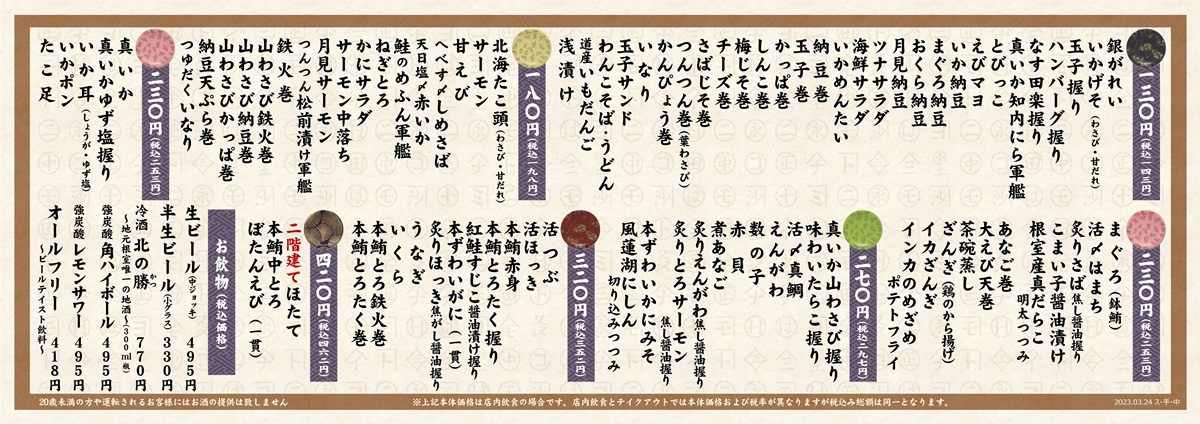 一三〇円(税込一四三円)
銀がれい
いかげそ(わさび・甘だれ)
玉子握り
ハンバーグ握り
なす田楽握り
真いか知内にら軍艦
とびっこ
えびマヨ
いか納豆
まぐろ納豆
おくら納豆
月見納豆
ツナサラダ
海鮮サラダ
いかめんたい
納豆巻
玉子巻
かっぱ巻
しんこ巻
梅じそ巻
チーズ巻
さばじそ巻
つんつん巻(葉わさび)
かんぴょう巻
いなり
玉子サンド
わんこそば・うどん
道産いもだんご
浅漬け
一八〇円(税込一九八円)
北海たこ頭(わさび・甘だれ)
サーモン
甘えび
へべす〆しめさば
天日塩〆赤いか
鮭のめふん軍艦
ねぎとろ
かにサラダ
サーモン中落ち
月見サーモン
つんつん松前漬け軍艦
鉄火巻
山わさび鉄火巻
山わさび納豆巻
山わさびかっぱ巻
納豆天ぷら巻
つゆだくいなり
二三〇円(税込二五三円)
真いか
真いかゆず塩握り
いか耳(しょうが・ゆず塩)
いかポン
たこ足
二三〇円(税込二五三円)
まぐろ(鉢鮪)
活〆はまち
炙りさば焦し醤油握り
こまい子醤油漬け
根室産真だらこ
明太つっみ
あなご巻
大えび天巻
茶碗蒸し
ざんぎ(鶏のから揚げ)
イカざんぎ
インカのめざめ
ポテトフライ
二七〇円(税込二九七円)
真いか山わさび握り
味わいたらこ握り
活〆真鯛
えんがわ
数の子
赤貝
煮あなご
炙りえんがわ焦し醤油握り
炙りとろサーモン
焦し醤油握り
本ずわいかにみそ
風蓮湖にしん
切り込みつっみ
三二〇円(税込三五二円)
活つぶ
活ほっき
本鮪赤身
本鮪とろたく握り
紅鮭すじこ醤油漬け握り
本ずわいがに(一貫)
炙りほっき焦がし醤油握り
うなぎ
いくら
本鮪とろ鉄火巻
本鮪とろたく巻
四二〇円(税込四六二円)
二階建てほたて
本鮪中とろ
ぼたんえび(一貫)
お飲物(税込価格)
生ビール(中ジョッキ) 495円
半生ビール(小グラス) 330円
冷酒 北の勝(かつ) 770円
〜地元根室唯一の地酒(300ml瓶)
強炭酸 角ハイボール 495円
強炭酸 レモンサワー 495円
オールフリー 418円
〜ビールテイスト飲料〜
20歳未満の方や運転されるお客様にはお酒の提供は致しません
※上記本体価格は店内飲食の場合です。店内飲食とテイクアウトでは本体価格および税率が異なりますが税込み総額は同一となります。
2023.03.24 ス・手・中